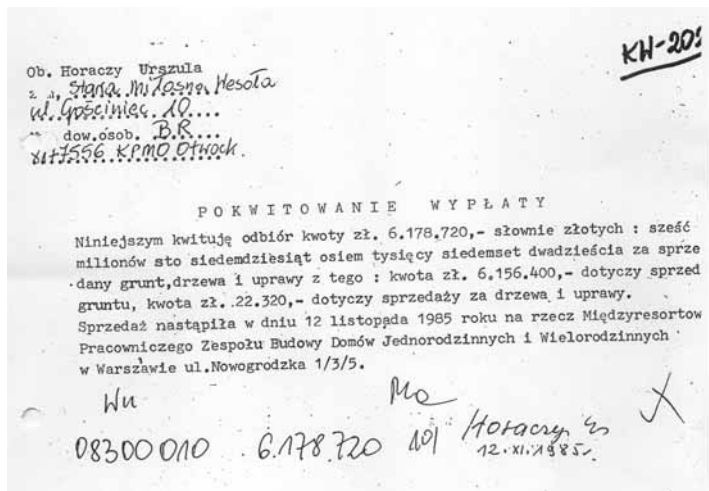 KW-20
Ob. Horaczy Urszula
z Stara Miłosna, Wesoła
ul. Gościniec 10....
dow.osob. B.R....
7556 KPMO Otwock.
POKWITOWANIE WYPŁATY
Niniejszym kwituję odbiór kwoty zł. 6.178.720,- słownie złotych : sześć
milionów sto siedemdziesiąt osiem tysięcy siedemset dwadzieścia za sprze
dany grunt,drzewa i uprawy z tego : kwota zł. 6.156.400,- dotyczy sprzed
gruntu, kwota zł. 22.320,- dotyczy sprzedaży za drzewa i uprawy.
Sprzedaż nastąpiła w dniu 12 listopada 1985 roku na rzecz Międzyresortow
Pracowniczego Zespołu Budowy Domów Jednorodzinnych i Wielorodzinnych
w Warszawie ul.Nowogrodzka 1/3/5.
Wn Ma
08300010 6.178.720 101 Horaczy
12.XI.1985r.